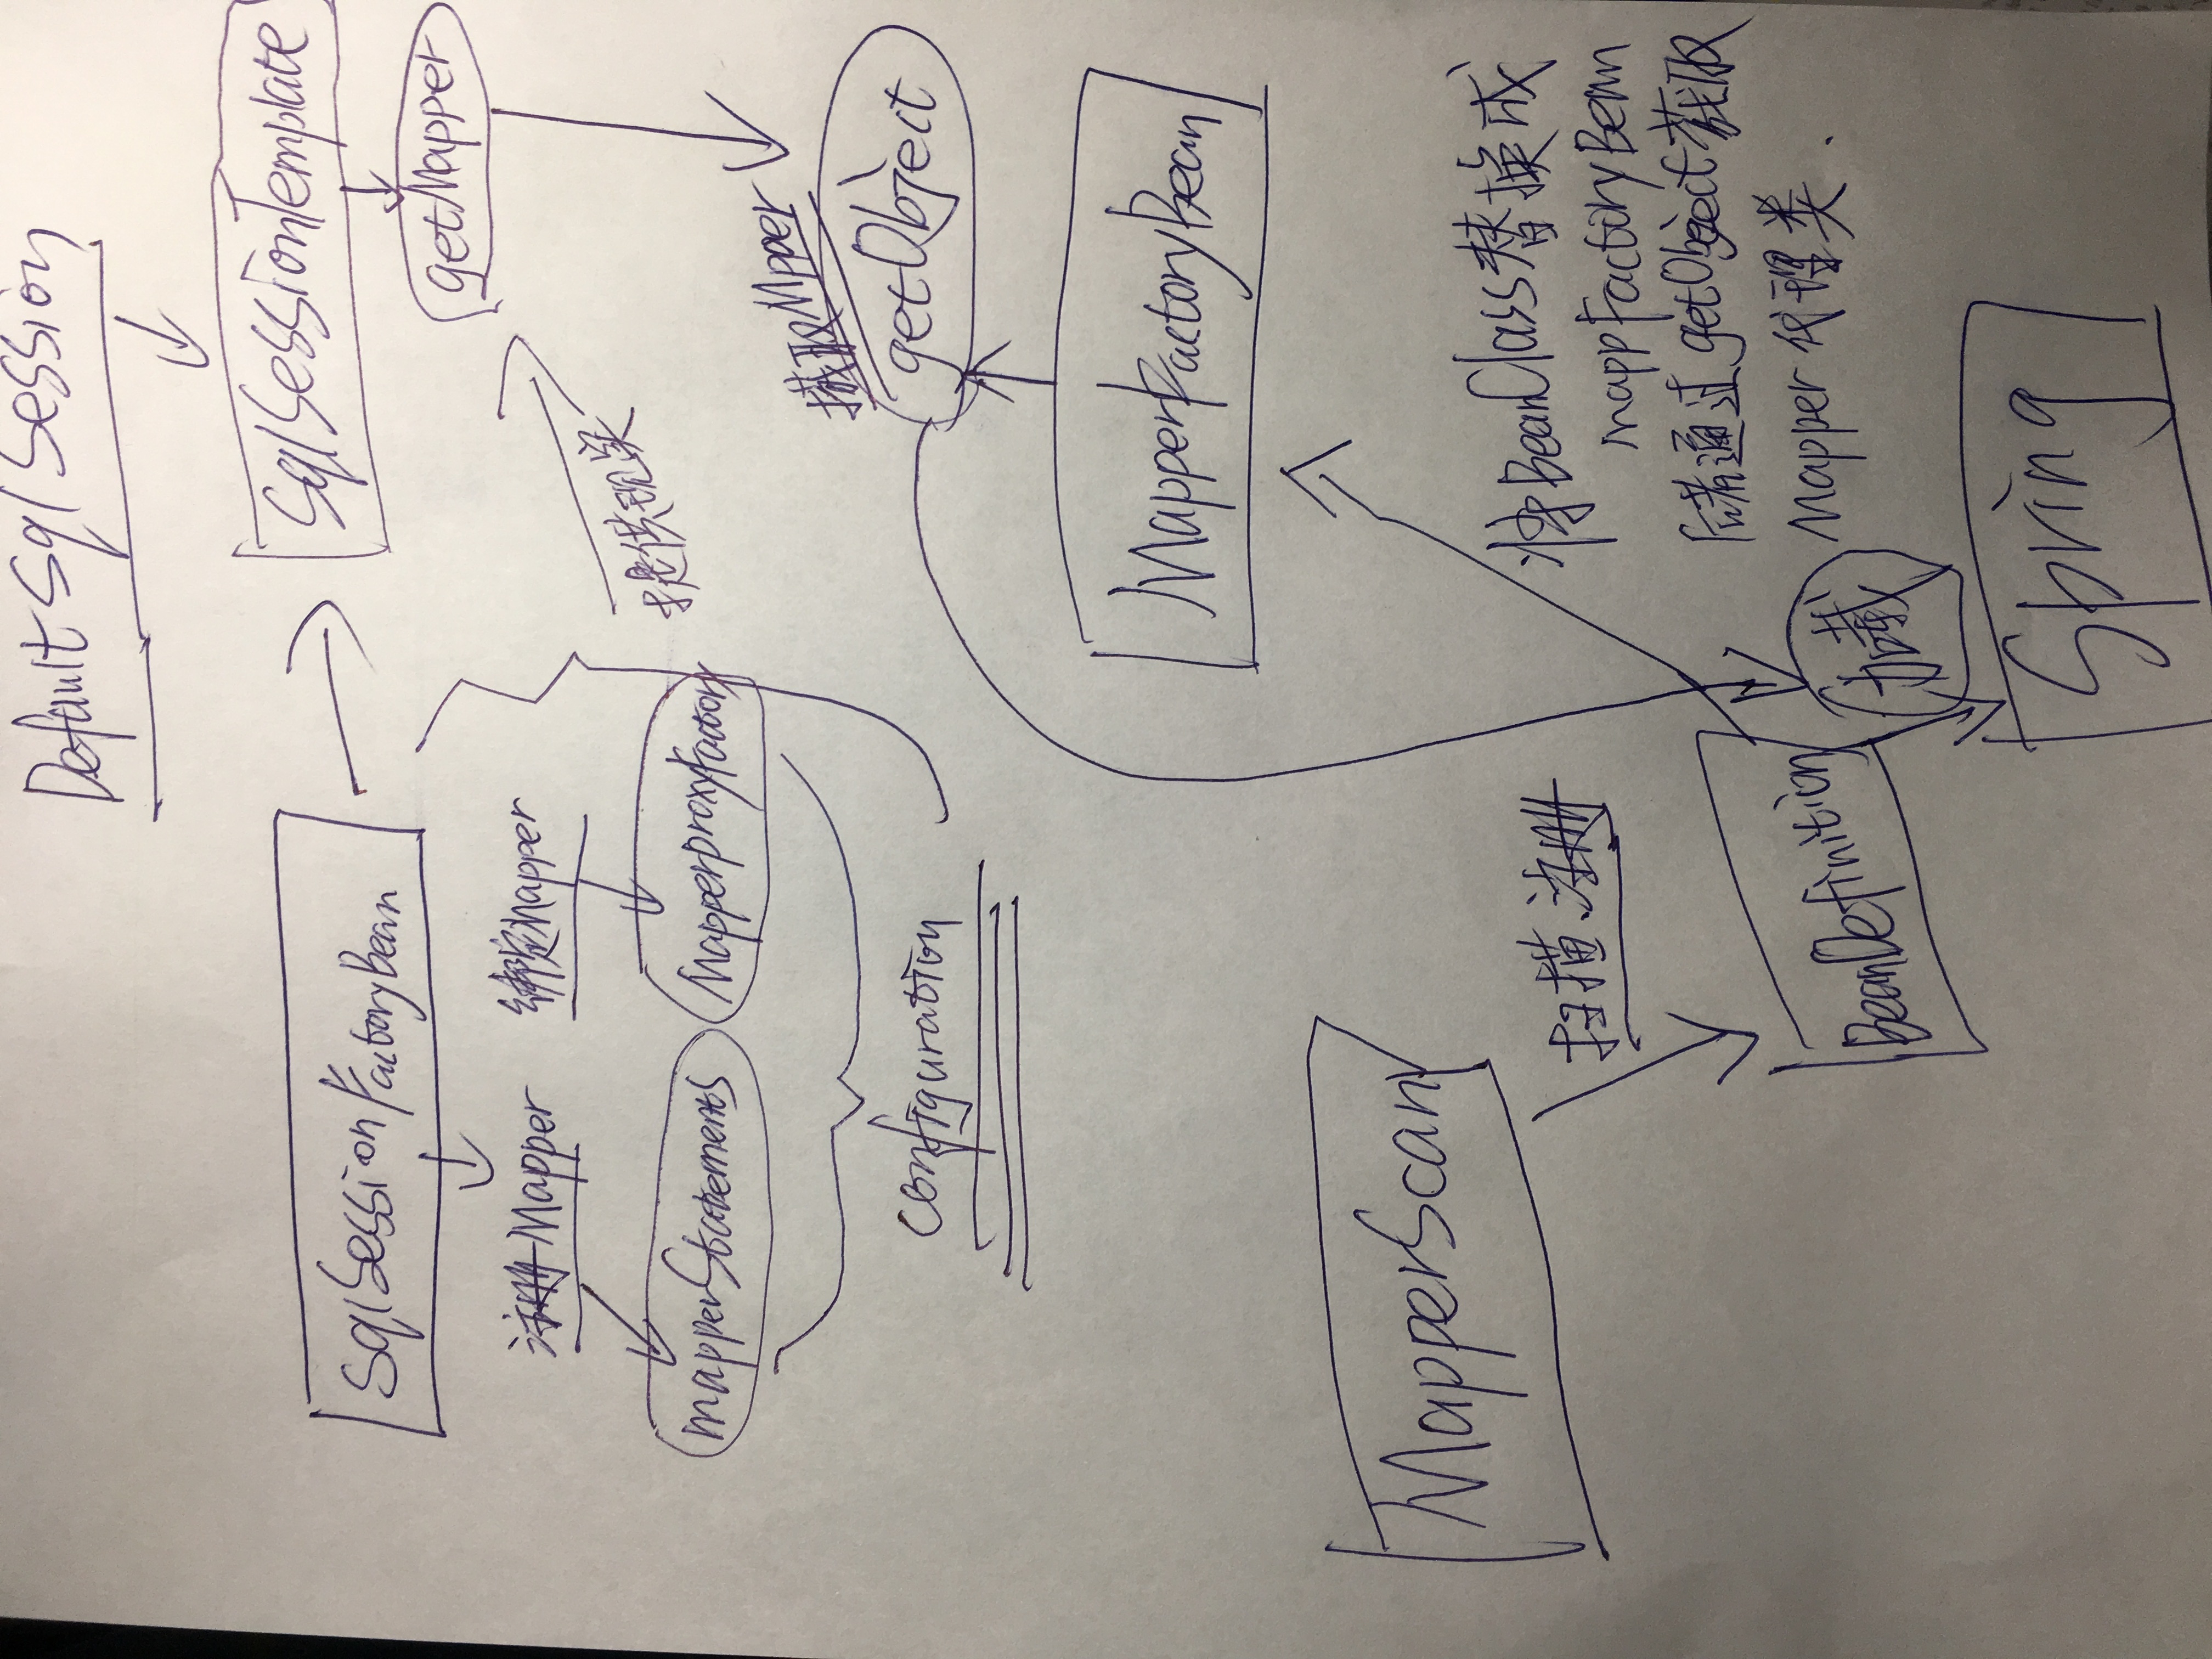 DefaultSqlSession
SqlSessionTemplate
SqlSessionFactoryBean
getMapper
注册Mapper
绑定Mapper
提供现实
mapperStatements
MapperproxyFactory
获取Mpper
getObject
configuration
MapperFactoryBean
MapperScan
扫描、注册
将BeanClass替换成
mappFactoryBean
后者通过getObject获取
Mapper代理类.
BeanDefinition
加载
Spring